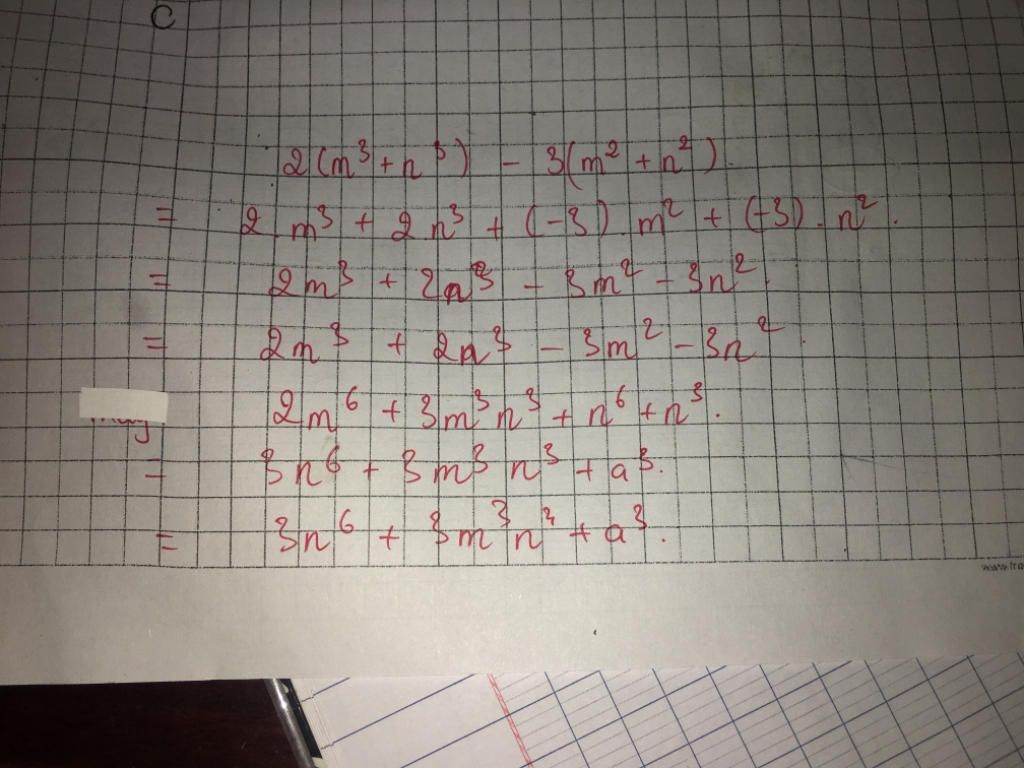 C
2(m³ + n³) - 3(m² + n²).
= 2.m³ + 2n³ + (-3).m² + (-3).n².
= 2m³ + 2n³ - 3m² - 3n².
= 2m³ + 2n³ - 3m² - 3n²
2m⁶ + 3m³n³ + n⁶ + n³.
= 3n⁶ + 3m³n³ + a³.
= 3n⁶ + 3m³n³ + a³.